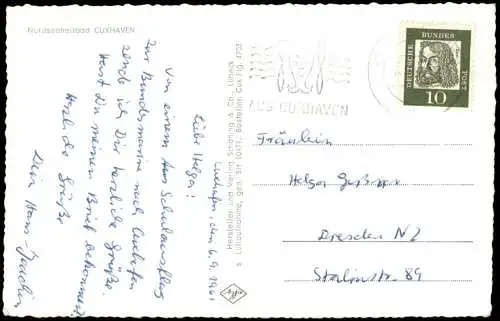 Nordseeheilbad CUXHAVEN
Cuxhafen, den 6.9.1961
Liebe Helga!
Von einem Schulausflug
zur Bundesmarine nach Cuxhafen
sende ich Dir herzliche Grüße.
Hast Du meinen Brief bekommen?
Herzliche Grüße
Dein Hans-Joachim
Hersteller und Verlag Schöning & Co., Lübeck
Luftaufnahme, gen. SH Bestellnr. Cux.Flg. 4703
agfa
AUS CUXHAVEN
DEUTSCHE BUNDESPOST
10
Fräulein
Helga
Dresden N2
Stalinstr. 89